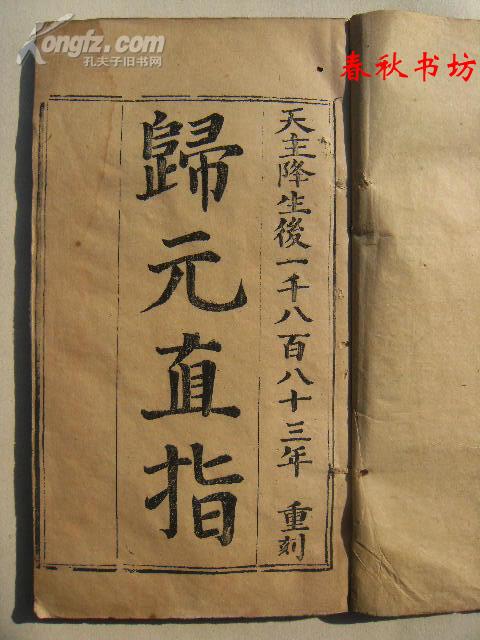 Kongfz.com
孔夫子旧书网
春秋书坊
天主降生後一千八百八十三年 重刻
歸元直指